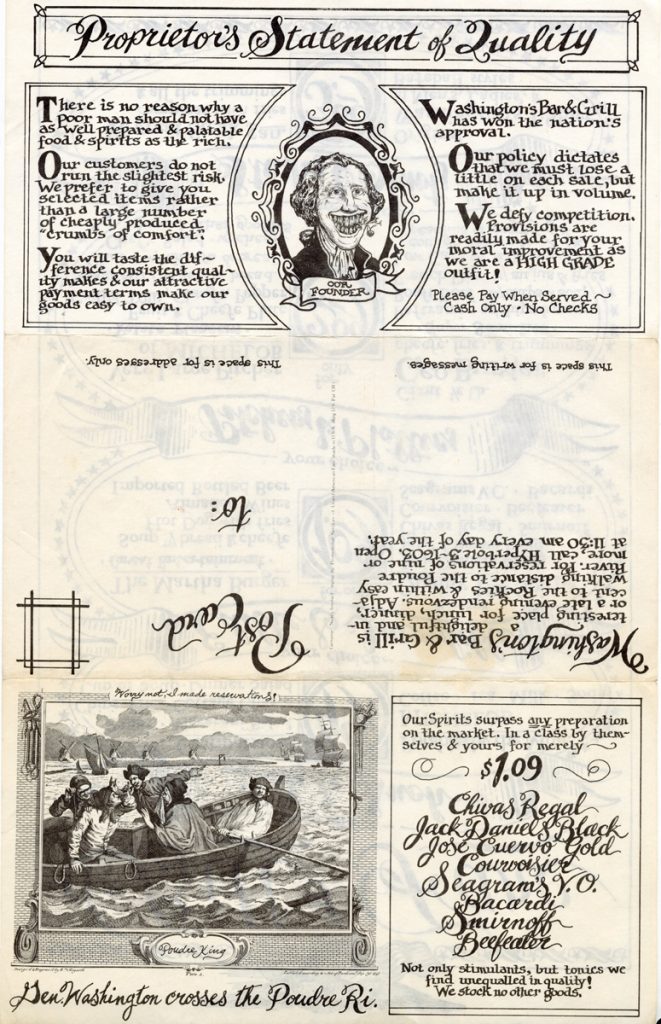 Proprietor's Statement of Quality
There is no reason why a
poor man should not have
as well prepared & palatable
food & spirits as the rich.
Our customers do not
run the slightest risk.
We prefer to give you
selected items rather
than a large number
of cheaply produced
"crumbs of comfort".
You will taste the dif-
ference consistent qual-
ity makes & our attractive
payment terms make our
goods easy to own.
OUR
FOUNDER
Washington's Bar & Grill
has won the nation's
approval.
Our policy dictates
that we must lose a
little on each sale, but
make it up in volume.
We defy competition.
Provisions are
readily made for your
moral improvement as
we are a HIGH GRADE
outfit!
Please Pay When Served ~
Cash Only · No Checks
This space is for addresses only.
This space is for writing messages.
Washington's Bar & Grill is
a delightful and in-
teresting place for lunch, dinner,
or a late evening rendezvous. Adja-
cent to the Rockies & within easy
walking distance to the Poudre
River. For reservations of nine or
more, call HYperbole 3-1603. Open
at 11:30 am every day of the year.
Post Card
to:
Worry not, I made reservations!
Poudre King
Gen. Washington crosses the Poudre Ri.
Our Spirits surpass any preparation
on the market. In a class by them-
selves & yours for merely
$1.09
Chivas Regal
Jack Daniels Black
José Cuervo Gold
Courvoisier
Seagram's V.O.
Bacardi
Smirnoff
Beefeater
Not only stimulants, but tonics we
find unequalled in quality!
We stock no other goods.